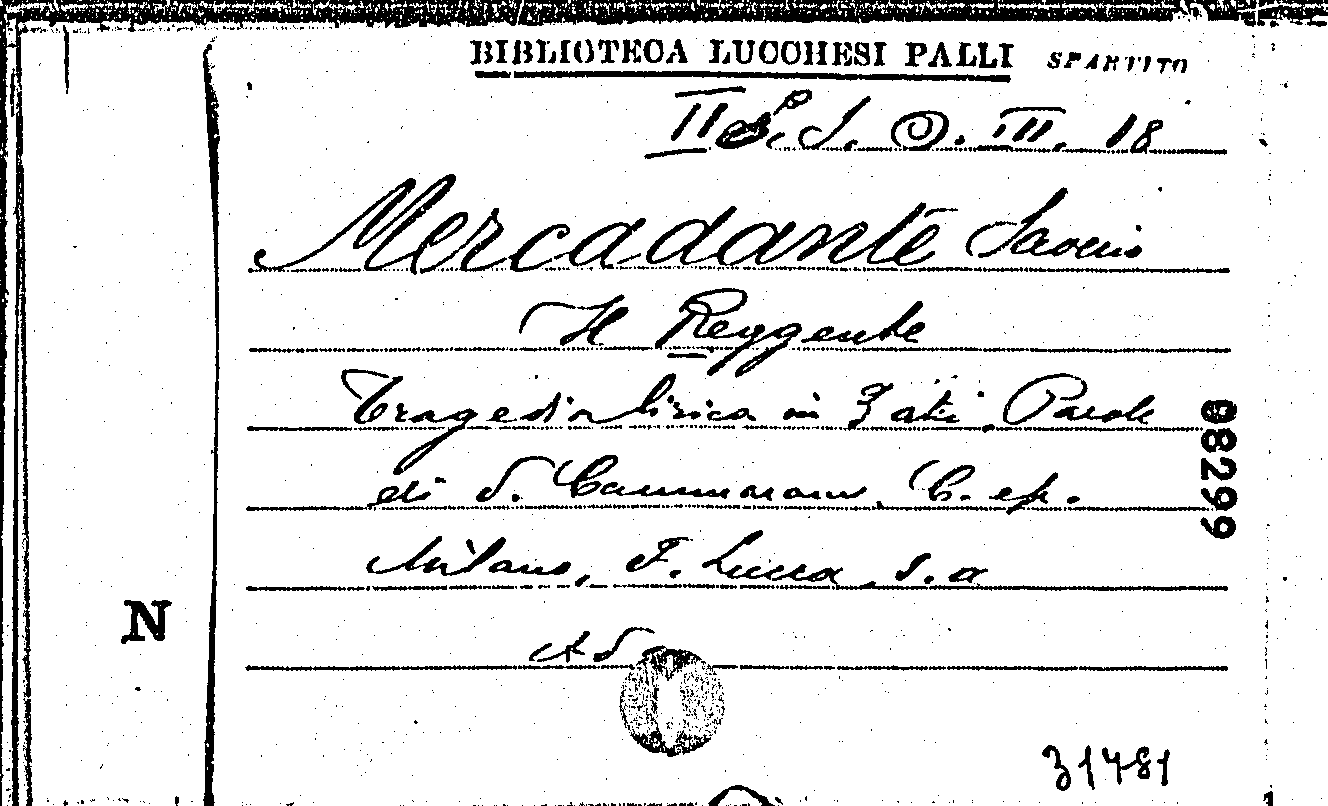 BIBLIOTECA LUCCHESI PALLI SPARTITO
II S. I. O. III. 18
Mercadante Saverio
Il Reggente
Tragedia lirica in 3 atti. Parole
di S. Cammarano. C. e p.
Milano, F. Lucca, s. a
08299
N
31781